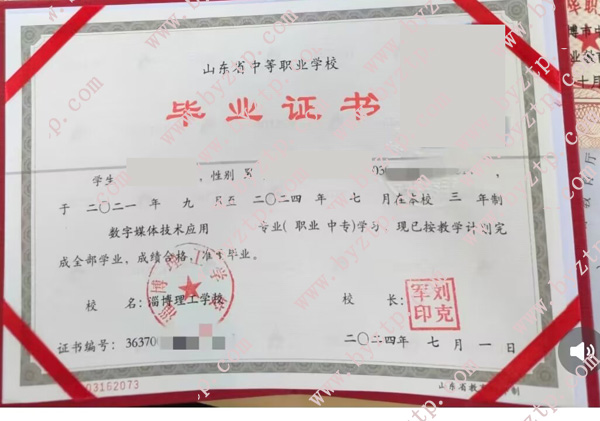 山东省中等职业学校
毕业证书
学生 ，性别 男
于 二〇二一 年 九 月至 二〇二四 年 七 月在本校 三 年制
数字媒体技术应用 专业( 职业 中专)学习，现已按教学计划完
成全部学业，成绩合格，准予毕业。
校 名：淄博理工学校 校 长：
刘克军印
证书编号：36370
二〇二四年 七 月 一 日
03162073
山东省教育 制
www.byztp.com